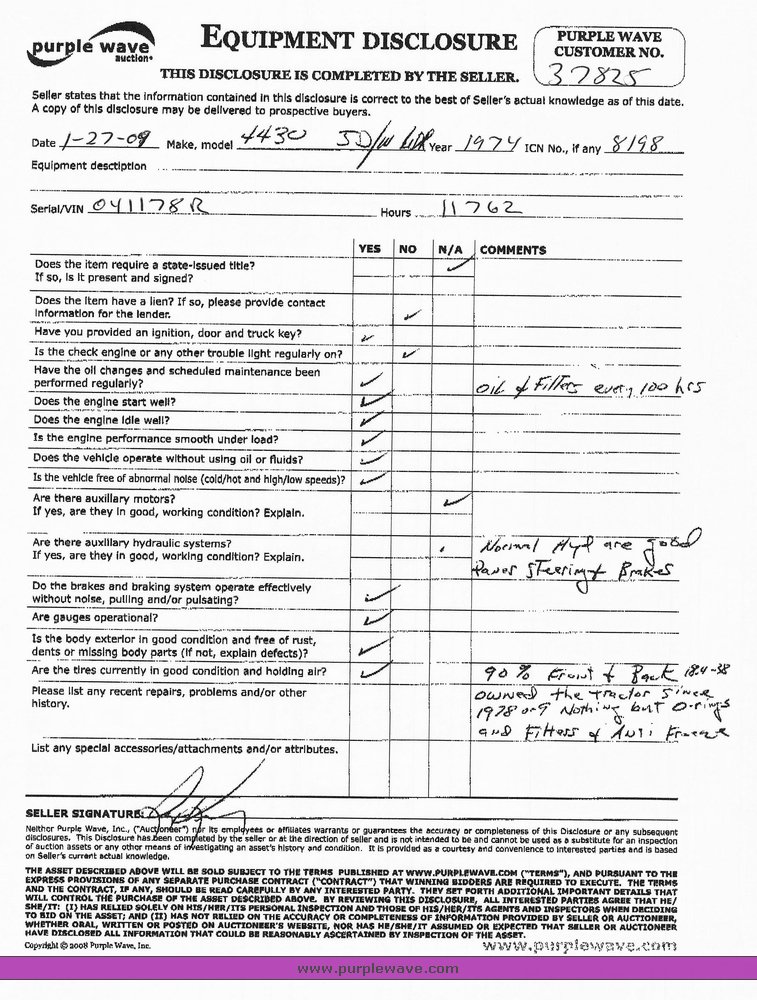 purple wave
auction
EQUIPMENT DISCLOSURE
PURPLE WAVE
CUSTOMER NO.
37825
THIS DISCLOSURE IS COMPLETED BY THE SELLER.
Seller states that the information contained in this disclosure is correct to the best of Seller's actual knowledge as of this date.
A copy of this disclosure may be delivered to prospective buyers.
Date 1-27-09 Make, model 4430 JD/w Year 1974 ICN No., if any 8198
Equipment description
Serial/VIN 041178R Hours 11762
YES NO N/A COMMENTS
Does the item require a state-issued title? ✓
If so, is it present and signed?
Does the item have a lien? If so, please provide contact
information for the lender. ✓
Have you provided an ignition, door and truck key? ✓
Is the check engine or any other trouble light regularly on? ✓
Have the oil changes and scheduled maintenance been
performed regularly? ✓ oil & Filters every 100 hrs
Does the engine start well? ✓
Does the engine idle well? ✓
Is the engine performance smooth under load? ✓
Does the vehicle operate without using oil or fluids? ✓
Is the vehicle free of abnormal noise (cold/hot and high/low speeds)? ✓
Are there auxiliary motors? ✓
If yes, are they in good, working condition? Explain.
Are there auxiliary hydraulic systems? Normal Hyd are good
If yes, are they in good, working condition? Explain. Power Steering & Brakes
Do the brakes and braking system operate effectively
without noise, pulling and/or pulsating? ✓
Are gauges operational? ✓
Is the body exterior in good condition and free of rust,
dents or missing body parts (if not, explain defects)? ✓
Are the tires currently in good condition and holding air? ✓ 90% Front & Back 18.4-38
Please list any recent repairs, problems and/or other owned the tractor since
history. 1978 Nothing but O-rings
and Filters & Anti Freeze
List any special accessories/attachments and/or attributes.
SELLER SIGNATURE:
Neither Purple Wave, Inc., ("Auctioneer") nor its employees or affiliates warrants or guarantees the accuracy or completeness of this Disclosure or any subsequent
disclosures. This Disclosure has been completed by the seller or at the direction of seller and is not intended to be and cannot be used as a substitute for an inspection
of auction assets or any other means of investigating an asset's history and condition. It is provided as a courtesy and convenience to interested parties and is based
on Seller's current actual knowledge.
THE ASSET DESCRIBED ABOVE WILL BE SOLD SUBJECT TO THE TERMS PUBLISHED AT WWW.PURPLEWAVE.COM ("TERMS"), AND PURSUANT TO THE
EXPRESS PROVISIONS OF ANY SEPARATE PURCHASE CONTRACT ("CONTRACT") THAT WINNING BIDDERS ARE REQUIRED TO EXECUTE. THE TERMS
AND THE CONTRACT, IF ANY, SHOULD BE READ CAREFULLY BY ANY INTERESTED PARTY. THEY SET FORTH ADDITIONAL IMPORTANT DETAILS THAT
WILL CONTROL THE PURCHASE OF THE ASSET DESCRIBED ABOVE. BY REVIEWING THIS DISCLOSURE, ALL INTERESTED PARTIES AGREE THAT HE/
SHE/IT: (I) HAS RELIED SOLELY ON HIS/HER/ITS PERSONAL INSPECTION AND THOSE OF HIS/HER/ITS AGENTS AND INSPECTORS WHEN DECIDING
TO BID ON THE ASSET; AND (II) HAS NOT RELIED ON THE ACCURACY OR COMPLETENESS OF INFORMATION PROVIDED BY SELLER OR AUCTIONEER,
WHETHER ORAL, WRITTEN OR POSTED ON AUCTIONEER'S WEBSITE, NOR HAS HE/SHE/IT ASSUMED OR EXPECTED THAT SELLER OR AUCTIONEER
HAVE DISCLOSED ALL INFORMATION THAT COULD BE REASONABLY ASCERTAINED BY INSPECTION OF THE ASSET.
Copyright © 2008 Purple Wave, Inc. www.purplewave.com
www.purplewave.com